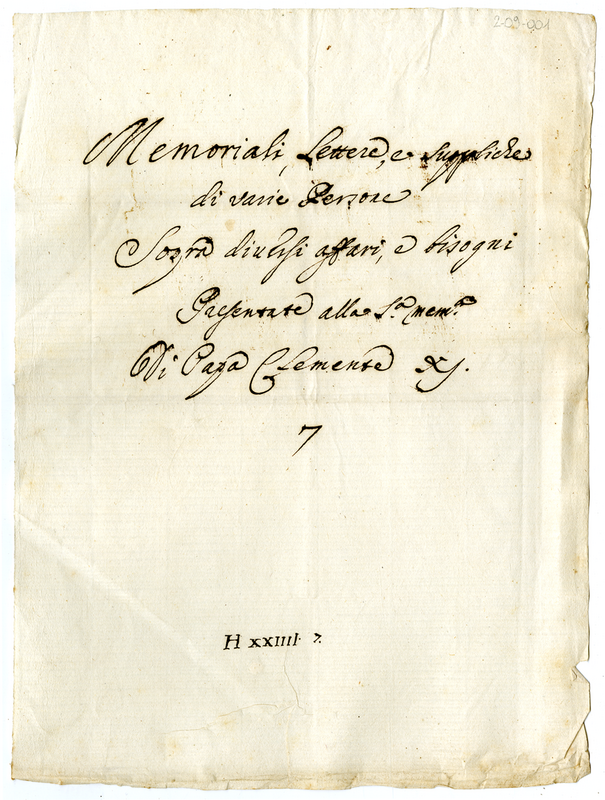 2-09-001
Memoriali, Lettere, e Suppliche
di varie Persone
Sopra diversi affari, e bisogni
Presentate alla S.ᵃ mem.ᵃ
Di Papa Clemente XJ.
7
H XXIIII. 7.